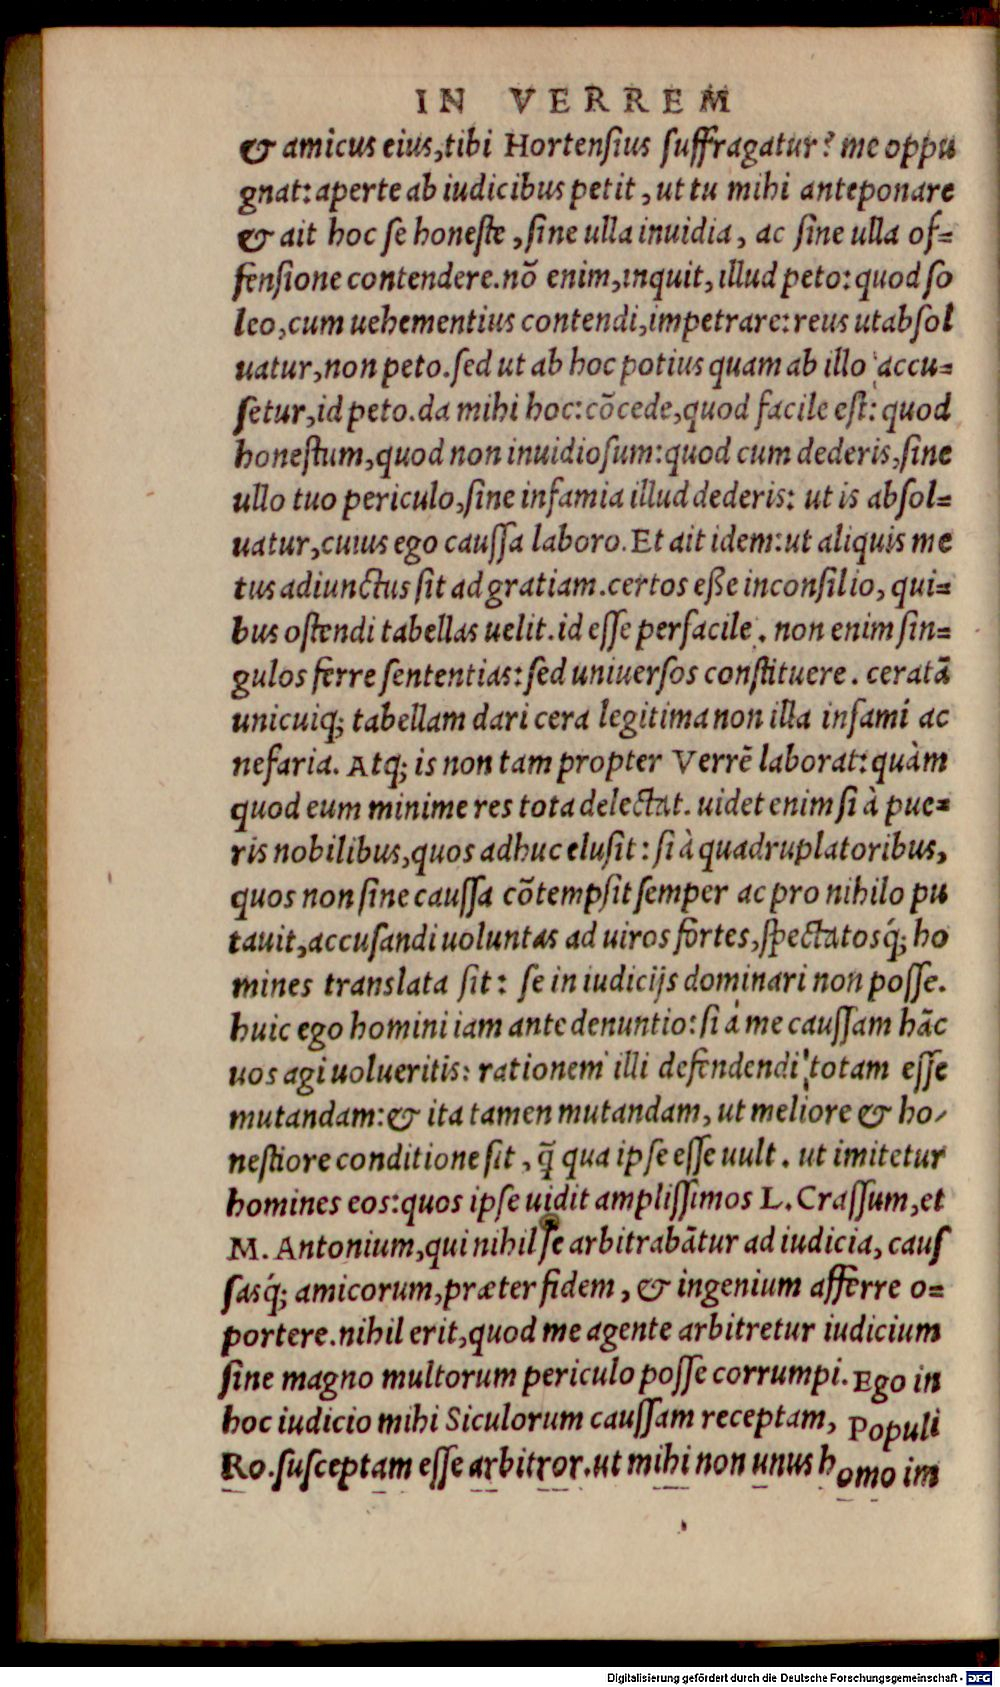 IN VERREM
& amicus eius, tibi Hortenſius ſuffragatur? me oppu
gnat: aperte ab iudicibus petit, ut tu mihi anteponare
& ait hoc ſe honeſte, ſine ulla inuidia, ac ſine ulla of=
fenſione contendere. nõ enim, inquit, illud peto: quod ſo
leo, cum uehementius contendi, impetrare: reus ut abſol
uatur, non peto. ſed ut ab hoc potius quam ab illo accu=
ſetur, id peto. da mihi hoc: cõcede, quod facile eſt: quod
honeſtum, quod non inuidioſum: quod cum dederis, ſine
ullo tuo periculo, ſine infamia illud dederis: ut is abſol=
uatur, cuius ego cauſſa laboro. Et ait idem: ut aliquis me
tus adiunctus ſit ad gratiam. certos eße in conſilio, qui=
bus oſtendi tabellas uelit. id eſſe perfacile. non enim ſin=
gulos ferre ſententias: ſed uniuerſos conſtituere. ceratã
unicuiq; tabellam dari cera legitima non illa inſami ac
nefaria. Atq; is non tam propter Verrẽ laborat: quàm
quod eum minime res tota delectat. uidet enim ſi à pue=
ris nobilibus, quos adhuc eluſit: ſi à quadruplatoribus,
quos non ſine cauſſa cõtempſit ſemper ac pro nihilo pu
tauit, accuſandi uoluntas ad uiros fortes, ſpectatosq́; ho
mines translata ſit: ſe in iudicijs dominari non poſſe.
huic ego homini iam ante denuntio: ſi à me cauſſam hãc
uos agi uolueritis: rationem illi defendendi totam eſſe
mutandam: & ita tamen mutandam, ut meliore & ho-
neſtiore conditione ſit, q̃ qua ipſe eſſe uult. ut imitetur
homines eos: quos ipſe uidit ampliſſimos L. Craſſum, et
M. Antonium, qui nihil ſe arbitrabãtur ad iudicia, cauſ
ſasq́; amicorum, præter fidem, & ingenium afferre o=
portere. nihil erit, quod me agente arbitretur iudicium
ſine magno multorum periculo poſſe corrumpi. Ego in
hoc iudicio mihi Siculorum cauſſam receptam, Populi
Ro. ſuſceptam eſſe arbitror. ut mihi non unus homo im
Digitalisierung gefördert durch die Deutsche Forschungsgemeinschaft - DFG